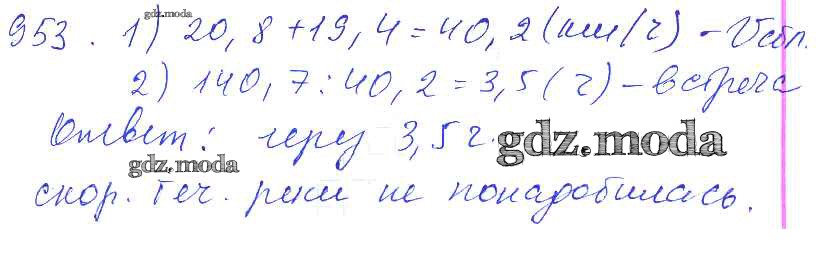 gdz.moda
953. 1) 20,8+19,4=40,2(км/ч) - Vсбл.
2) 140,7:40,2=3,5(ч) - встреча
Ответ: через 3,5 ч. gdz.moda
gdz.moda
скор. теч. реки не понадобилась.